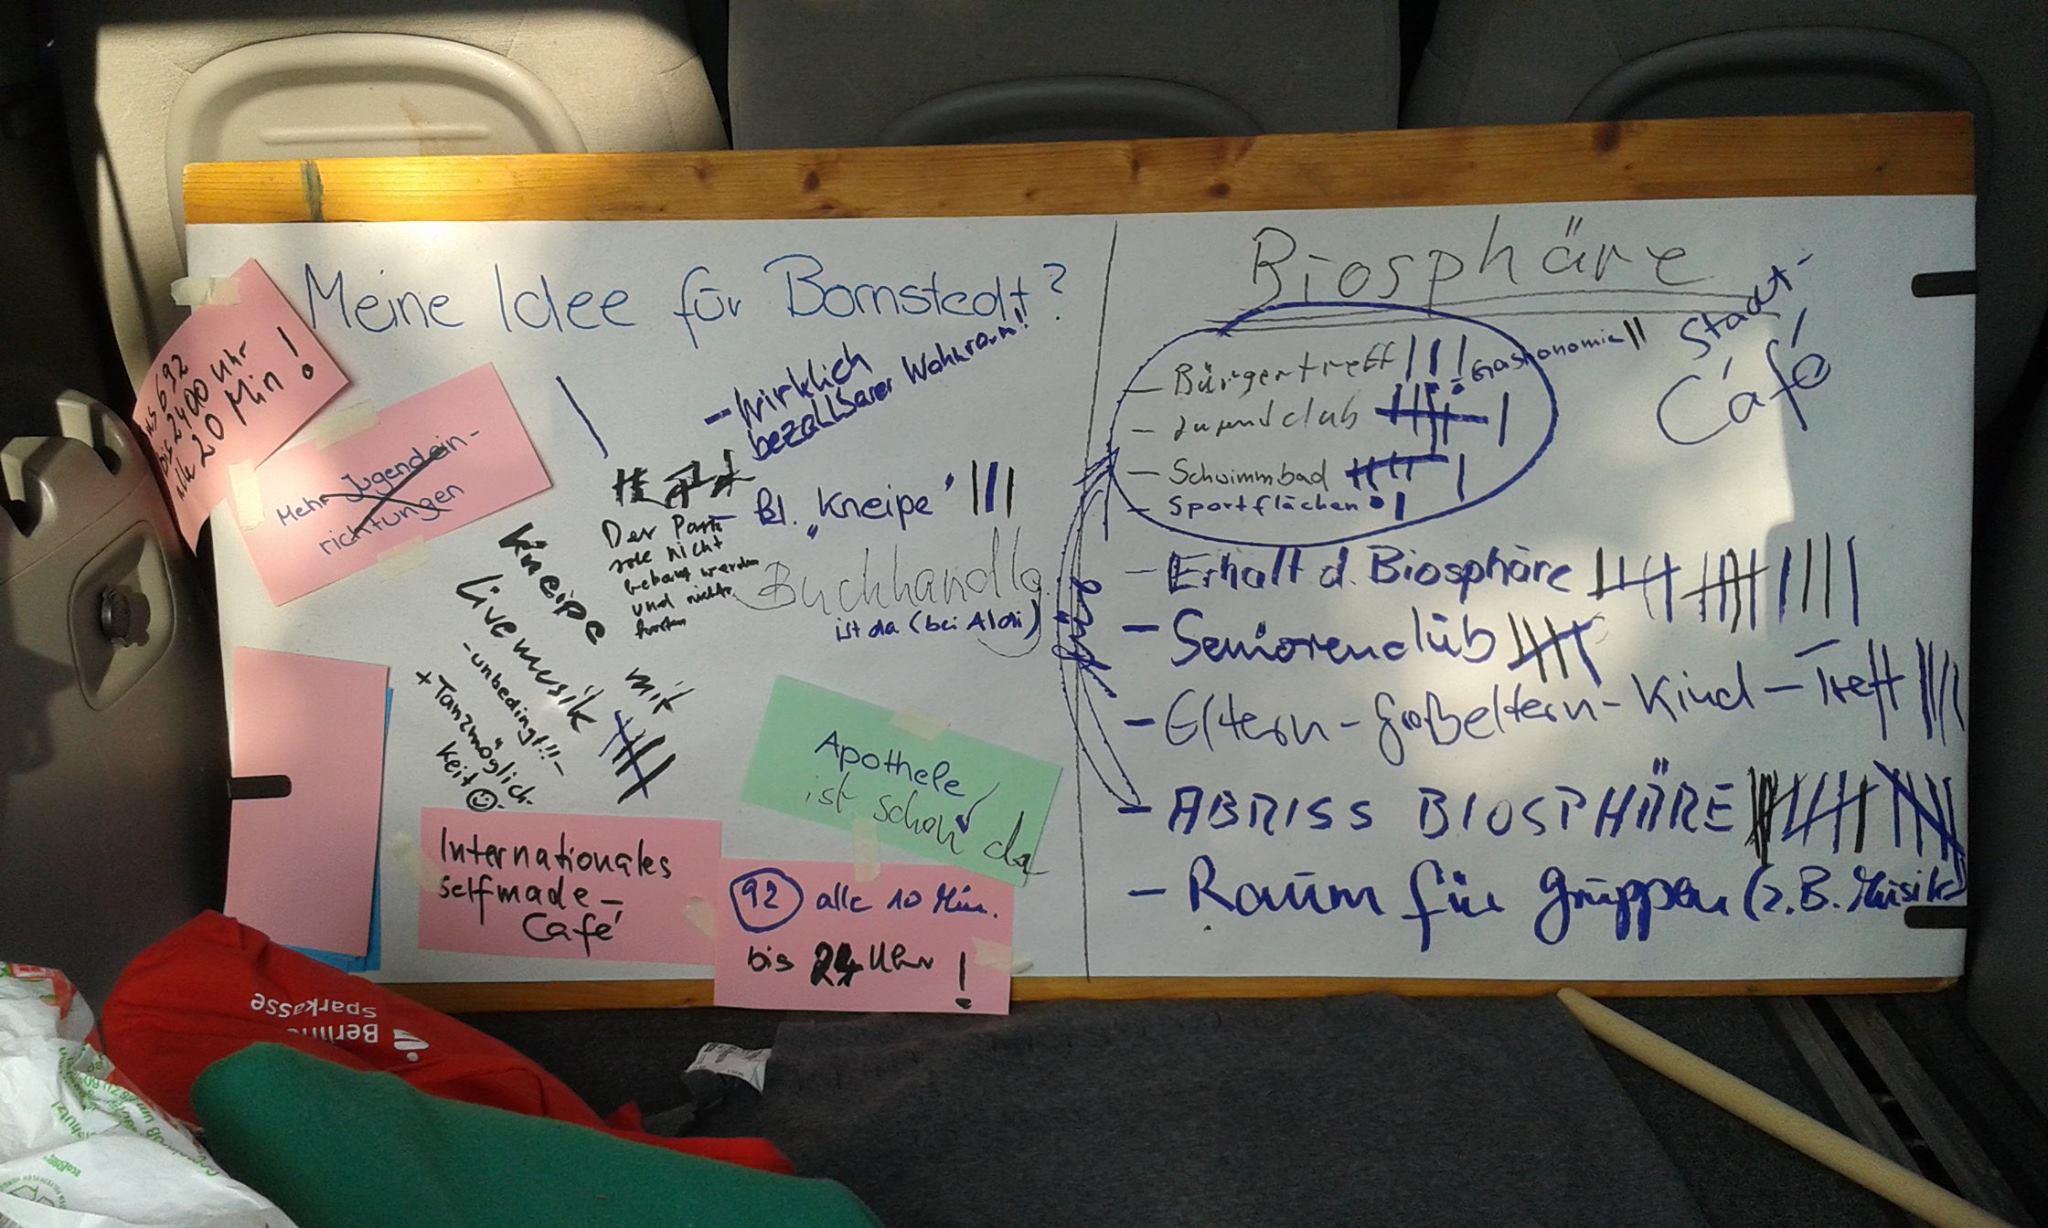 Meine Idee für Bornstedt?
692
bis 2400 Uhr
alle 20 Min!
Mehr Jugendein-
richtungen
- Wirklich
bezahlbarer Wohnraum!!
Bl. „Kneipe" |||
Der Park
sole nicht
bebaut werden
und nichts
Buchhandlg.
ist da (bei Aldi)
Kneipe mit
Livemusik
- unbedingt!! -
+ Tanzmöglich-
keit
Apotheke
ist schon da
Internationales
Selfmade-
Café
92 alle 10 Min.
bis 24 Uhr !
Biosphäre
Stadt-
Café
- Bürgertreff ||| Gastronomie ||
- Jugendclub
- Schwimmbad
- Sportflächen
- Erhalt d. Biosphäre
- Seniorenclub
- Eltern-Großeltern-Kind-Treff ||||
- ABRISS BIOSPHÄRE
- Raum für Gruppen (z.B. Musik)
Berline
sparkasse